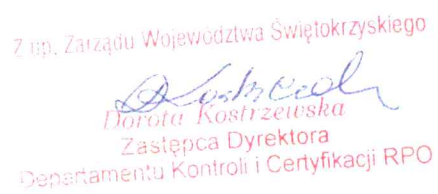 Z up. Zarządu Województwa Świętokrzyskiego
Dorota Kostrzewska
Zastępca Dyrektora
Departamentu Kontroli i Certyfikacji RPO